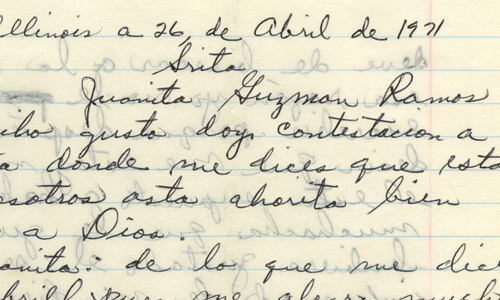 Illinois a 26, de Abril de 1971
Srita
Juanita Guzman Ramos
cho gusto doy contestacion a
a donde me dices que esta
osotros asta ahorita bien
a Dios.
anita: de lo que me dic
me